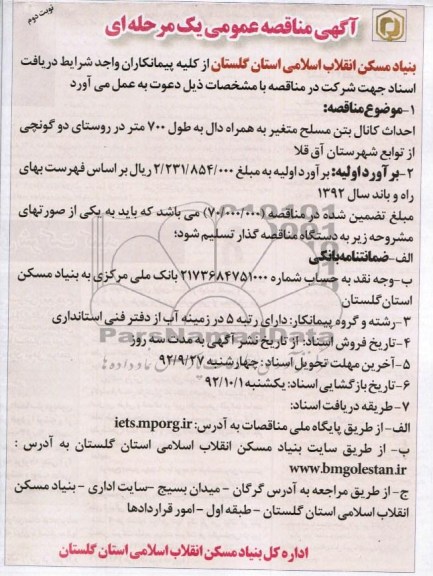 نوبت دوم
آگهی مناقصه عمومی یک مرحله ای
بنیاد مسکن انقلاب اسلامی استان گلستان از کلیه پیمانکاران واجد شرایط دریافت
اسناد جهت شرکت در مناقصه با مشخصات ذیل دعوت به عمل می آورد
۱-موضوع مناقصه:
احداث کانال بتن مسلح متغیر به همراه دال به طول ۷۰۰ متر در روستای دو گونچی
از توابع شهرستان آق قلا
۲-برآورد اولیه: برآورد اولیه به مبلغ ۲/۲۳۱/۸۵۴/۰۰۰ ریال بر اساس فهرست بهای
راه و باند سال ۱۳۹۲
مبلغ تضمین شده در مناقصه (۷۰/۰۰۰/۰۰۰) می باشد که باید به یکی از صورتهای
مشروحه زیر به دستگاه مناقصه گذار تسلیم شود؛
الف-ضمانتنامه بانکی
ب-وجه نقد به حساب شماره ۲۱۷۳۶۸۴۷۵۱۰۰۰ بانک ملی مرکزی به بنیاد مسکن
استان گلستان
۳-رشته و گروه پیمانکار: دارای رتبه ۵ در زمینه آب از دفتر فنی استانداری
۴-تاریخ فروش اسناد: از تاریخ نشر آگهی به مدت سه روز
۵-آخرین مهلت تحویل اسناد: چهارشنبه ۹۲/۹/۲۷
۶-تاریخ بازگشایی اسناد: یکشنبه ۹۲/۱۰/۱
۷-طریقه دریافت اسناد:
الف-از طریق پایگاه ملی مناقصات به آدرس: iets.mporg.ir
ب- از طریق سایت بنیاد مسکن انقلاب اسلامی استان گلستان به آدرس :
www.bmgolestan.ir
ج- از طریق مراجعه به آدرس گرگان - میدان بسیج -سایت اداری - بنیاد مسکن
انقلاب اسلامی استان گلستان - طبقه اول - امور قراردادها
اداره کل بنیاد مسکن انقلاب اسلامی استان گلستان